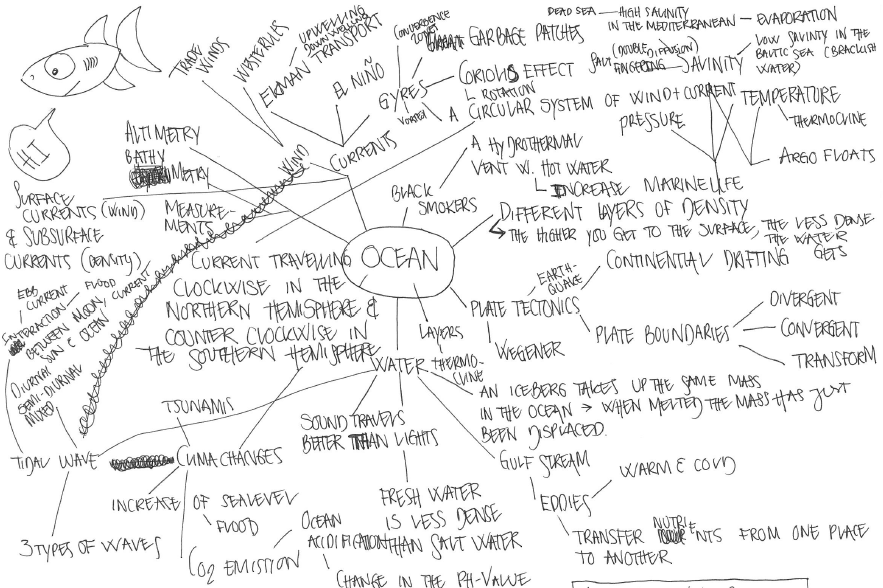 HI
TRADE
WINDS
WESTERLIES
UPWELLING
DOWNWELLING
EKMAN TRANSPORT
EL NIÑO
CONVERGENCE
ZONES
GARBAGE PATCHES
GYRES
CORIOLIS EFFECT
ROTATION
VORTEX
A CIRCULAR SYSTEM OF WIND + CURRENT
DEAD SEA
HIGH SALINITY
IN THE MEDITERRANEAN
EVAPORATION
SALT (DOUBLE DIFFUSION)
FINGERING
SALINITY
LOW SALINITY IN THE
BALTIC SEA (BRACKISH
WATER)
PRESSURE
TEMPERATURE
THERMOCLINE
ARGO FLOATS
ALTIMETRY
BATHY
METRY
WIND
CURRENTS
SURFACE
CURRENTS (WIND)
& SUBSURFACE
CURRENTS (DENSITY)
MEASURE-
MENTS
BLACK
SMOKERS
A HYDROTHERMAL
VENT W. HOT WATER
INCREASE MARINE LIFE
OCEAN
DIFFERENT LAYERS OF DENSITY
THE HIGHER YOU GET TO THE SURFACE, THE LESS DENSE
THE WATER
GETS
CURRENT TRAVELLING
CLOCKWISE IN THE
NORTHERN HEMISPHERE &
COUNTER CLOCKWISE IN
THE SOUTHERN HEMISPHERE
EARTH-
QUAKE
CONTINENTIAL DRIFTING
PLATE TECTONICS
WEGENER
PLATE BOUNDARIES
DIVERGENT
CONVERGENT
TRANSFORM
EBB
CURRENT
FLOOD
CURRENT
INTERACTION
BETWEEN MOON,
SUN & OCEAN
DIURNAL
SEMI-DIURNAL
MIXED
LAYERS
THERMO-
CLINE
WATER
AN ICEBERG TAKES UP THE SAME MASS
IN THE OCEAN → WHEN MELTED THE MASS HAS JUST
BEEN DISPLACED.
TSUNAMIS
SOUND TRAVELS
BETTER THAN LIGHTS
TIDAL WAVE
CLIMA CHANGES
GULF STREAM
EDDIES
WARM & COLD
INCREASE OF SEALEVEL
FLOOD
FRESH WATER
IS LESS DENSE
THAN SALT WATER
TRANSFER NUTRIENTS FROM ONE PLACE
TO ANOTHER
3 TYPES OF WAVES
CO2 EMISSION
OCEAN
ACIDIFICATION
CHANGE IN THE PH-VALUE